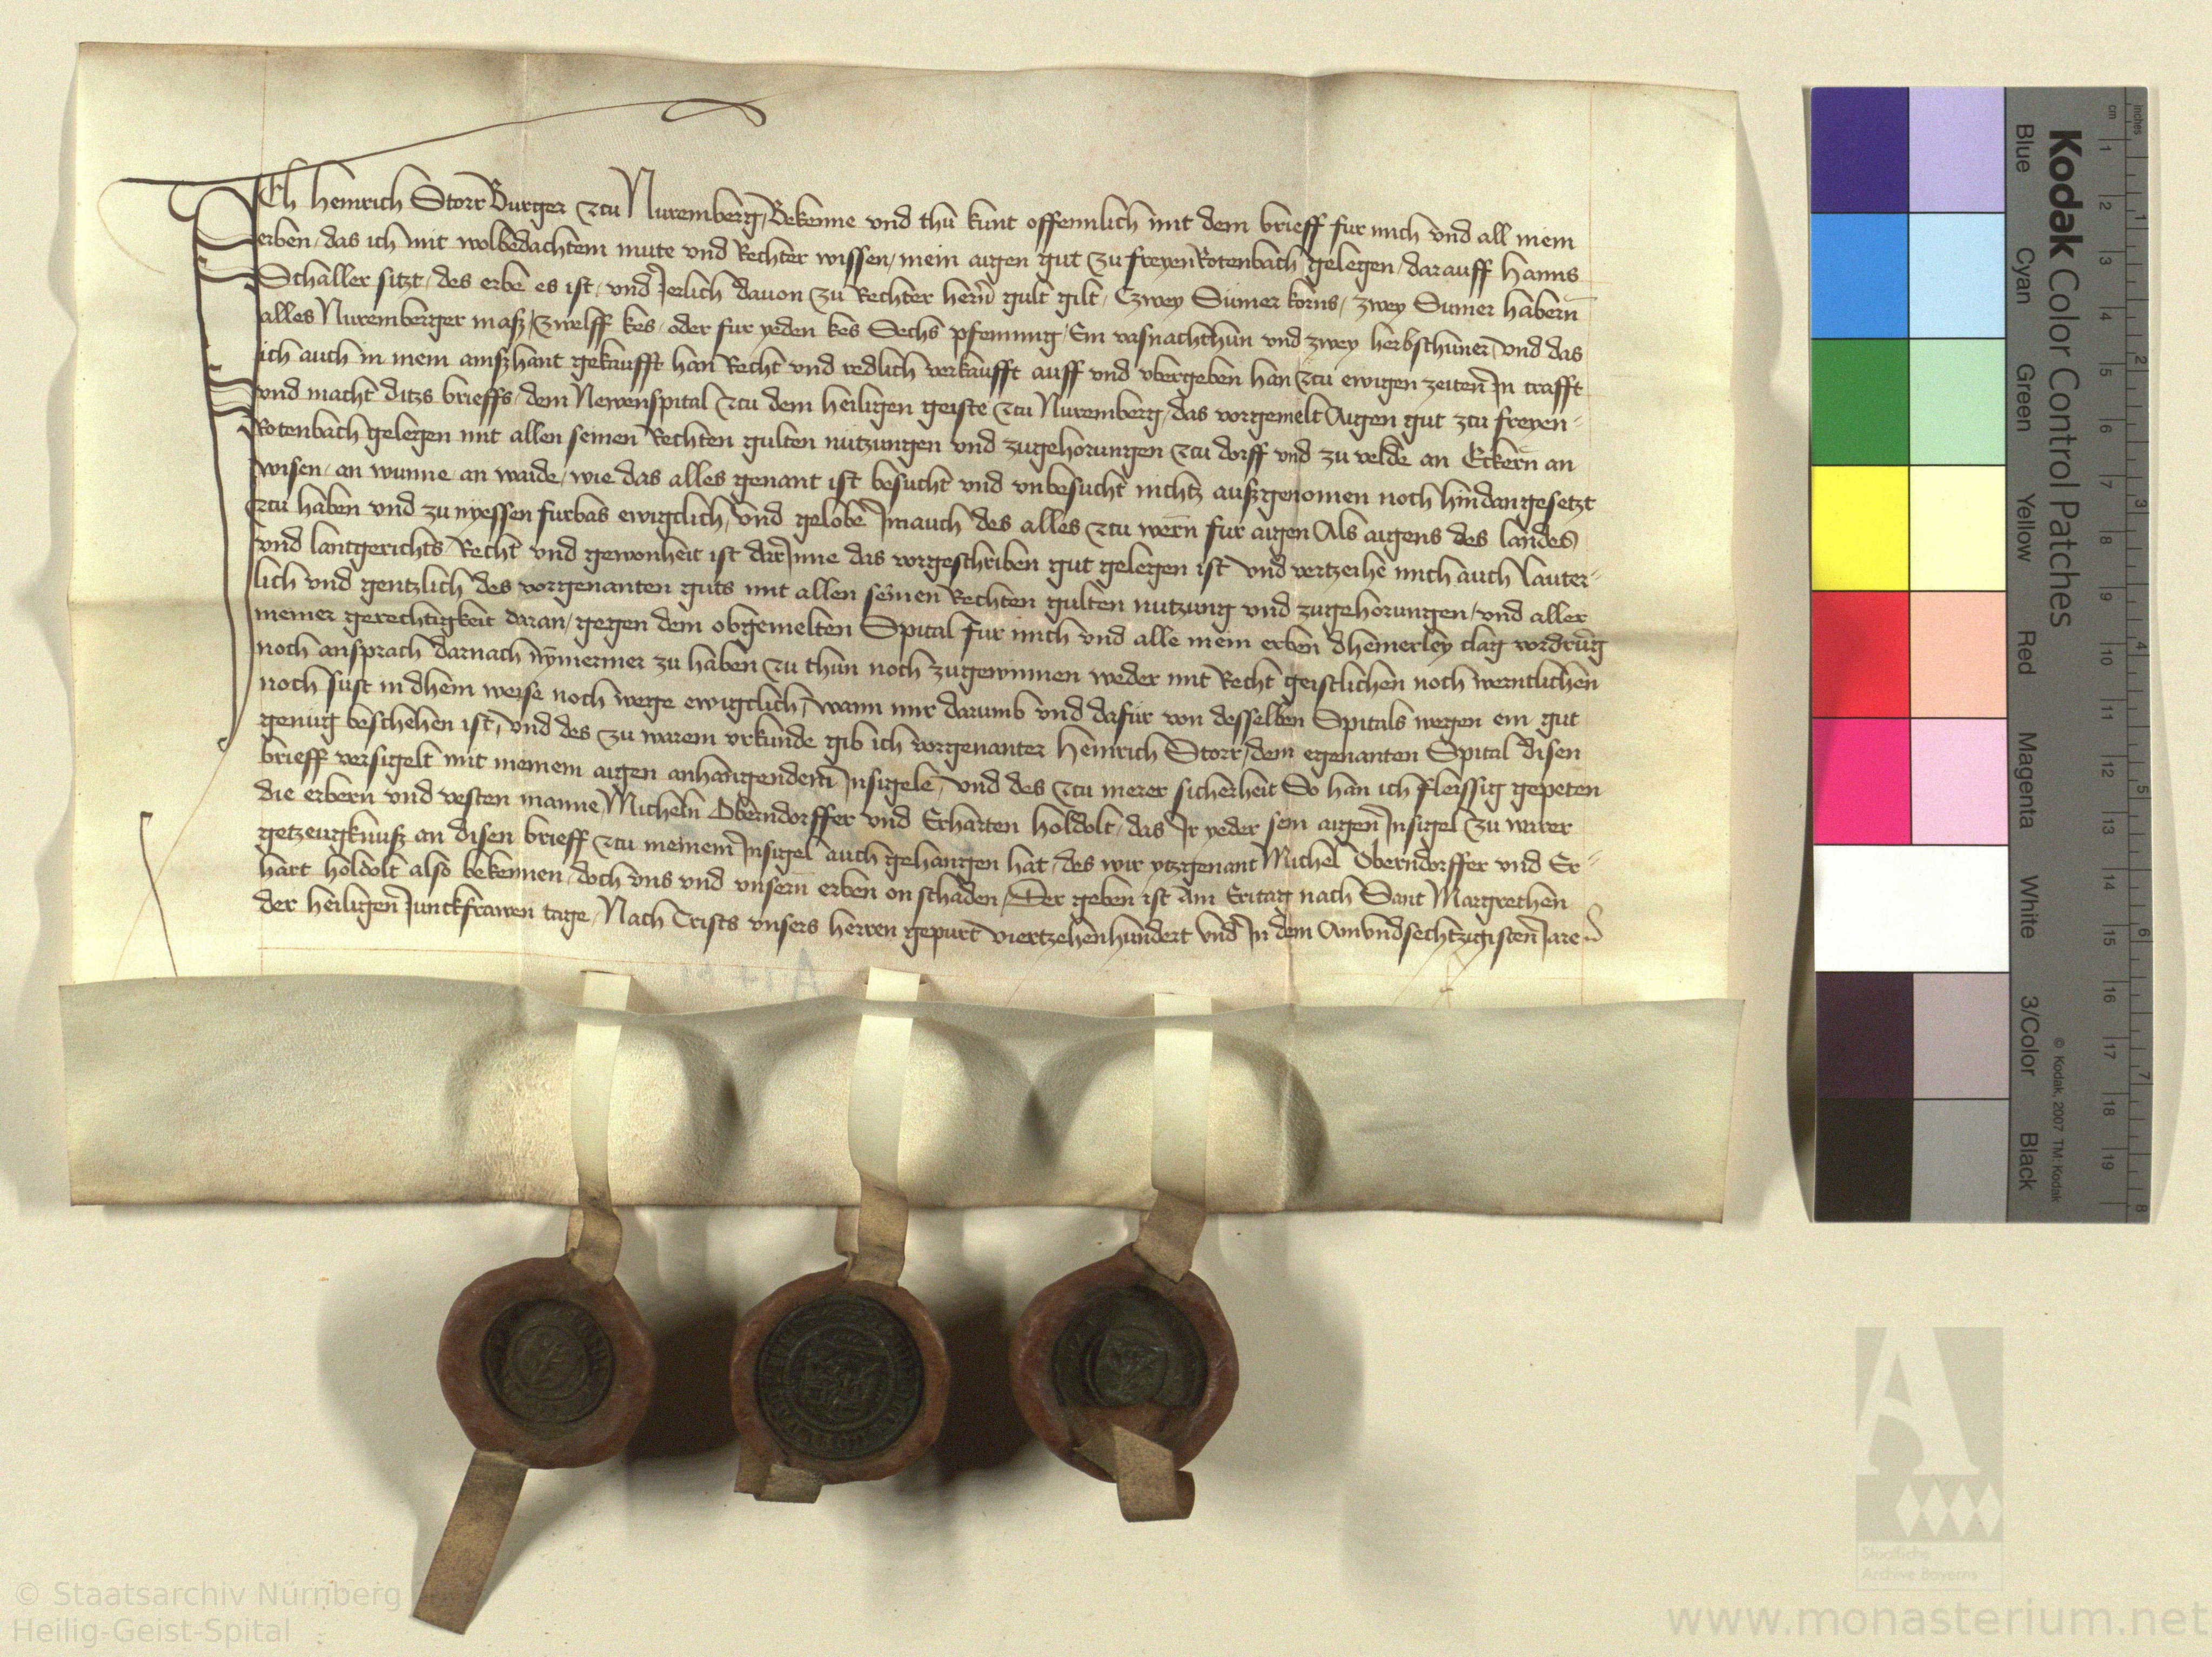 ICh Heinrich Storr Burger zcu Nuremberg, Bekenne vnd thu kunt offennlich mit dem brieff fur mich vnd all mein
erben, das ich mit wolbedachtem mute vnd Rechter wissen, mein aigen gut zu freyenRotenbach gelegen, darauff Hanns
Schaller sitzt, des erbe es ist, vnd Jerlich dauon zu Rechter herrn gult gilt, Czwey Sumer korns, zwey Sumer habern
alles Nuremberger masz, Zwelff kes, oder fur yeden kes Sechs pfenning, Ein vasnachthun vnd zwey herbsthuner, vnd das
ich auch in mein ainszhant gekaufft han Recht vnd redlich verkaufft auff vnd vbergeben han zcu ewigen zeiten In crafft
vnd macht ditzs brieffs, dem Newenspital zcu dem heiligen geiste zcu Nuremberg, das vorgemelt Aigen gut zcu freyen-
Rotenbach gelegen mit allen seinen Rechten gulten nutzungen vnd zugehorungen zcu dorff vnd zu velde an Eckern an
wisen, an wunne, an waide, wie das alles genant ist besucht vnd vnbesucht nichtz auszgenomen noch hindangesetzt
zcu haben vnd zu nyessen furbas ewigclich, vnd gelobe Im auch des alles zcu wern fur aigen Als aigens des landes
vnd lantgerichts, Recht vnd gewonheit ist dar Inne das vorgeschriben gut gelegen ist vnd vertzeihe mich auch lauter-
lich vnd gentzlich des vorgenanten guts mit allen seinen Rechten gulten nutzung vnd zugehorungen, vnd aller
meiner gerechtigkeit daran, gegen dem obgemelten Spital fur mich vnd alle mein erben dheinerley clag vordrung
noch ansprach darnach nymermer zu haben zu thun noch zugewinnen weder mit Recht geistlichen noch werntlichen
noch sust in dhein weise noch wege ewigclich, wann mir darumb vnd dafur von desselben Spitals wegen ein gut
genug beschehen ist, vnd des zu warem vrkunde gib ich vorgenanter Heinrich Storr, dem egenanten Spital disen
brieff versigelt mit meinem aigen anhangendem Insigele, vnd des zcu merer sicherheit So han ich fleissig gepeten
die erbern vnd vesten manne, Micheln Oberndorffer vnd Erharten Holdolt, das Ir yeder sein aigen Insigel zu warer
getzeugknusz an disen brieff zcu meinem Insigel auch gehangen hat, des wir ytzgenant Michel Oberndorffer vnd Er-
hart Holdolt also bekennen, doch vns vnd vnsern erben on schaden, Der geben ist Am Eritag nach Sant Margrethen
der heiligen Junckfrawen tage, Nach Crists vnsers herren gepurt viertzehenhundert vnd In dem Ainvndsechtzigisten Jare
Kodak Color Control Patches
Blue Cyan Green Yellow Red Magenta White 3/Color Black
© Kodak, 2007 TM: Kodak
cm 1 2 3 4 5 6 7 8 9 10 11 12 13 14 15 16 17 18 19
inches 1 2 3 4 5 6 7 8
Staatliche
Archive Bayerns
© Staatsarchiv Nürnberg
Heilig-Geist-Spital
www.monasterium.net